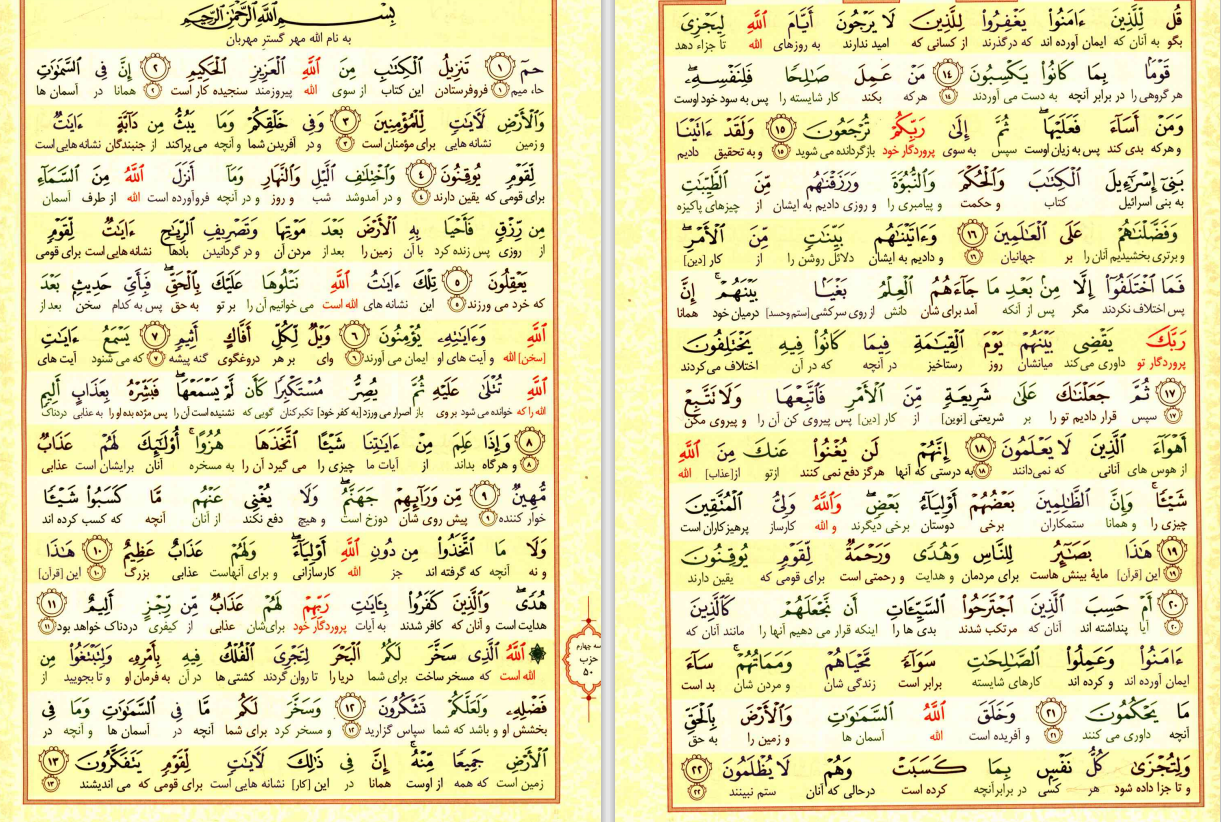 بِسْمِ اللَّهِ الرَّحْمَٰنِ الرَّحِيمِ
به نام الله مهر گستر مهربان
حمٓ ۝١ تَنزِيلُ ٱلْكِتَٰبِ مِنَ ٱللَّهِ ٱلْعَزِيزِ ٱلْحَكِيمِ ۝٢ إِنَّ فِى ٱلسَّمَٰوَٰتِ
حا، میم ۝١ فروفرستادن این کتاب از سوی الله پیروزمند سنجیده کار است ۝٢ همانا در آسمان ها
وَٱلْأَرْضِ لَءَايَٰتٍ لِّلْمُؤْمِنِينَ ۝٣ وَفِى خَلْقِكُمْ وَمَا يَبُثُّ مِن دَآبَّةٍ ءَايَٰتٌ
و زمین نشانه هایی برای مؤمنان است ۝٣ و در آفریدن شما و آنچه می پراکند از جنبندگان نشانه هایی است
لِّقَوْمٍ يُوقِنُونَ ۝٤ وَٱخْتِلَٰفِ ٱلَّيْلِ وَٱلنَّهَارِ وَمَآ أَنزَلَ ٱللَّهُ مِنَ ٱلسَّمَآءِ
برای قومی که یقین دارند ۝٤ و در آمدوشد شب و روز و در آنچه فروآورده است الله از طرف آسمان
مِن رِّزْقٍ فَأَحْيَا بِهِ ٱلْأَرْضَ بَعْدَ مَوْتِهَا وَتَصْرِيفِ ٱلرِّيَٰحِ ءَايَٰتٌ لِّقَوْمٍ
از روزی پس زنده کرد با آن زمین را بعد از مردن آن و در گردانیدن بادها نشانه هایی است برای قومی
يَعْقِلُونَ ۝٥ تِلْكَ ءَايَٰتُ ٱللَّهِ نَتْلُوهَا عَلَيْكَ بِٱلْحَقِّ ۖ فَبِأَىِّ حَدِيثٍ بَعْدَ
که خرد می ورزند ۝٥ این نشانه های الله است می خوانیم آن را بر تو به حق پس به کدام سخن بعد از
ٱللَّهِ وَءَايَٰتِهِۦ يُؤْمِنُونَ ۝٦ وَيْلٌ لِّكُلِّ أَفَّاكٍ أَثِيمٍ ۝٧ يَسْمَعُ ءَايَٰتِ
[سخن] الله و آیت های او ایمان می آورند ۝٦ وای بر هر دروغگوی گنه پیشه ۝٧ که می شنود آیت های
ٱللَّهِ تُتْلَىٰ عَلَيْهِ ثُمَّ يُصِرُّ مُسْتَكْبِرًا كَأَن لَّمْ يَسْمَعْهَا ۖ فَبَشِّرْهُ بِعَذَابٍ أَلِيمٍ
الله را که خوانده می شود بر وی باز اصرار می ورزد [به کفر خود] تکبرکنان گویی که نشنیده است آن را پس مژده بده او را به عذابی دردناک
۝٨ وَإِذَا عَلِمَ مِنْ ءَايَٰتِنَا شَيْـًٔا ٱتَّخَذَهَا هُزُوًا ۚ أُو۟لَٰٓئِكَ لَهُمْ عَذَابٌ
۝٨ و هرگاه بداند از آیات ما چیزی را می گیرد آن را به مسخره آنان برایشان است عذابی
مُّهِينٌ ۝٩ مِّن وَرَآئِهِمْ جَهَنَّمُ ۖ وَلَا يُغْنِى عَنْهُم مَّا كَسَبُوا۟ شَيْـًٔا
خوار کننده ۝٩ پیش روی شان دوزخ است و هیچ دفع نکند از آنان آنچه که کسب کرده اند
وَلَا مَا ٱتَّخَذُوا۟ مِن دُونِ ٱللَّهِ أَوْلِيَآءَ ۖ وَلَهُمْ عَذَابٌ عَظِيمٌ ۝١٠ هَٰذَا
و نه آنچه که گرفته اند جز الله کارسازانی و برای آنهاست عذابی بزرگ ۝١٠ این [قرآن]
هُدًى ۖ وَٱلَّذِينَ كَفَرُوا۟ بِـَٔايَٰتِ رَبِّهِمْ لَهُمْ عَذَابٌ مِّن رِّجْزٍ أَلِيمٌ ۝١١
هدایت است و آنان که کافر شدند به آیات پروردگار خود برای‌شان عذابی از کیفری دردناک خواهد بود ۝١١
ٱللَّهُ ٱلَّذِى سَخَّرَ لَكُمُ ٱلْبَحْرَ لِتَجْرِىَ ٱلْفُلْكُ فِيهِ بِأَمْرِهِۦ وَلِتَبْتَغُوا۟ مِن
الله است که مسخر ساخت برای شما دریا را تا روان گردند کشتی ها در آن به فرمان او و تا بجویید از
فَضْلِهِۦ وَلَعَلَّكُمْ تَشْكُرُونَ ۝١٢ وَسَخَّرَ لَكُم مَّا فِى ٱلسَّمَٰوَٰتِ وَمَا فِى
بخشش او و باشد که شما سپاس گزارید ۝١٢ و مسخر کرد برای شما آنچه در آسمان ها و آنچه در
ٱلْأَرْضِ جَمِيعًا مِّنْهُ ۚ إِنَّ فِى ذَٰلِكَ لَءَايَٰتٍ لِّقَوْمٍ يَتَفَكَّرُونَ ۝١٣
زمین است که همه از اوست همانا در این [کار] نشانه هایی است برای قومی که می اندیشند ۝١٣
حزب
۵۰
قُل لِّلَّذِينَ ءَامَنُوا۟ يَغْفِرُوا۟ لِلَّذِينَ لَا يَرْجُونَ أَيَّامَ ٱللَّهِ لِيَجْزِىَ
بگو به آنان که ایمان آورده اند که درگذرند از کسانی که امید ندارند به روزهای الله تا جزاء دهد
قَوْمًۢا بِمَا كَانُوا۟ يَكْسِبُونَ ۝١٤ مَنْ عَمِلَ صَٰلِحًا فَلِنَفْسِهِۦ ۖ
هر گروهی را در برابر آنچه به دست می آوردند ۝١٤ هرکه بکند کار شایسته را پس به سود خود اوست
وَمَنْ أَسَآءَ فَعَلَيْهَا ۖ ثُمَّ إِلَىٰ رَبِّكُمْ تُرْجَعُونَ ۝١٥ وَلَقَدْ ءَاتَيْنَا
و هرکه بدی کند پس به زیان اوست سپس به سوی پروردگار خود بازگردانده می شوید ۝١٥ و به تحقیق دادیم
بَنِىٓ إِسْرَٰٓءِيلَ ٱلْكِتَٰبَ وَٱلْحُكْمَ وَٱلنُّبُوَّةَ وَرَزَقْنَٰهُم مِّنَ ٱلطَّيِّبَٰتِ
به بنی اسرائیل کتاب و حکمت و پیامبری را و روزی دادیم به ایشان از چیزهای پاکیزه
وَفَضَّلْنَٰهُمْ عَلَى ٱلْعَٰلَمِينَ ۝١٦ وَءَاتَيْنَٰهُم بَيِّنَٰتٍ مِّنَ ٱلْأَمْرِ ۖ
و برتری بخشیدیم آنان را بر جهانیان ۝١٦ و دادیم به ایشان دلائل روشن را از کار [دین]
فَمَا ٱخْتَلَفُوٓا۟ إِلَّا مِنۢ بَعْدِ مَا جَآءَهُمُ ٱلْعِلْمُ بَغْيًۢا بَيْنَهُمْ ۚ إِنَّ
پس اختلاف نکردند مگر پس از آنکه آمد برای شان دانش از روی سرکشی [ستم وحسد] درمیان خود همانا
رَبَّكَ يَقْضِى بَيْنَهُمْ يَوْمَ ٱلْقِيَٰمَةِ فِيمَا كَانُوا۟ فِيهِ يَخْتَلِفُونَ
پروردگار تو داوری می کند میانشان روز رستاخیز در آنچه که در آن اختلاف می کردند
۝١٧ ثُمَّ جَعَلْنَٰكَ عَلَىٰ شَرِيعَةٍ مِّنَ ٱلْأَمْرِ فَٱتَّبِعْهَا وَلَا تَتَّبِعْ
۝١٧ سپس قرار دادیم تو را بر شریعتی [نوین] از کار [دین] پس پیروی کن آن را و پیروی مکن
أَهْوَآءَ ٱلَّذِينَ لَا يَعْلَمُونَ ۝١٨ إِنَّهُمْ لَن يُغْنُوا۟ عَنكَ مِنَ ٱللَّهِ
از هوس های آنانی که نمی دانند ۝١٨ به درستی که آنها هرگز دفع نمی کنند از تو از [عذاب] الله
شَيْـًٔا ۚ وَإِنَّ ٱلظَّٰلِمِينَ بَعْضُهُمْ أَوْلِيَآءُ بَعْضٍ ۖ وَٱللَّهُ وَلِىُّ ٱلْمُتَّقِينَ
چیزی را و همانا ستمکاران برخی دوستان برخی دیگرند و الله کارساز پرهیزکاران است
۝١٩ هَٰذَا بَصَٰٓئِرُ لِلنَّاسِ وَهُدًى وَرَحْمَةٌ لِّقَوْمٍ يُوقِنُونَ
۝١٩ این [قرآن] مایهٔ بینش هاست برای مردمان و هدایت و رحمتی است برای قومی که یقین دارند
۝٢٠ أَمْ حَسِبَ ٱلَّذِينَ ٱجْتَرَحُوا۟ ٱلسَّيِّـَٔاتِ أَن نَّجْعَلَهُمْ كَٱلَّذِينَ
۝٢٠ آیا پنداشته اند آنان که مرتکب شدند بدی ها را اینکه قرار می دهیم آنها را مانند آنان که
ءَامَنُوا۟ وَعَمِلُوا۟ ٱلصَّٰلِحَٰتِ سَوَآءً مَّحْيَاهُمْ وَمَمَاتُهُمْ ۚ سَآءَ
ایمان آورده اند و کرده اند کارهای شایسته برابر است زندگی شان و مردن شان بد است
مَا يَحْكُمُونَ ۝٢١ وَخَلَقَ ٱللَّهُ ٱلسَّمَٰوَٰتِ وَٱلْأَرْضَ بِٱلْحَقِّ
آنچه داوری می کنند ۝٢١ و آفریده است الله آسمان ها و زمین را به حق
وَلِتُجْزَىٰ كُلُّ نَفْسٍۭ بِمَا كَسَبَتْ وَهُمْ لَا يُظْلَمُونَ ۝٢٢
و تا جزا داده شود هر کسی در برابرآنچه کرده است درحالی که آنان ستم نبینند ۝٢٢